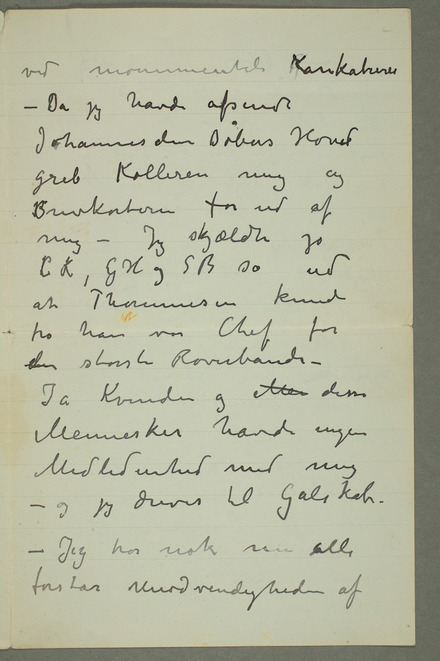 ved monumentale Karikaturer
– Da jeg havde afsendt
Johannes den Døbers Hoved
greb Kolleren mig og
Brevkortene for ud af
mig – Jeg skjældte jo
CK, GH og SB so ud
at Thommesen kunde
tro han var Chef for
den største Røverbande –
Ja Kvinden og disse
Mennesker havde ingen
Medlidenhed med mig
– og jeg dreves til Galskab.
– Jeg tror nok alle
forstår Unødvendigheden af